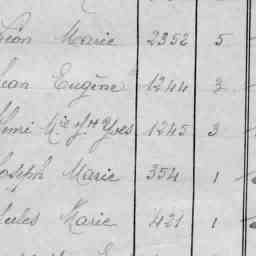 Léon Marie 2352 5
Jean Eugène 1244 3
Henri Mie Jh Yves 1245 3
Joseph Marie 354 1
Jules Marie 421 1